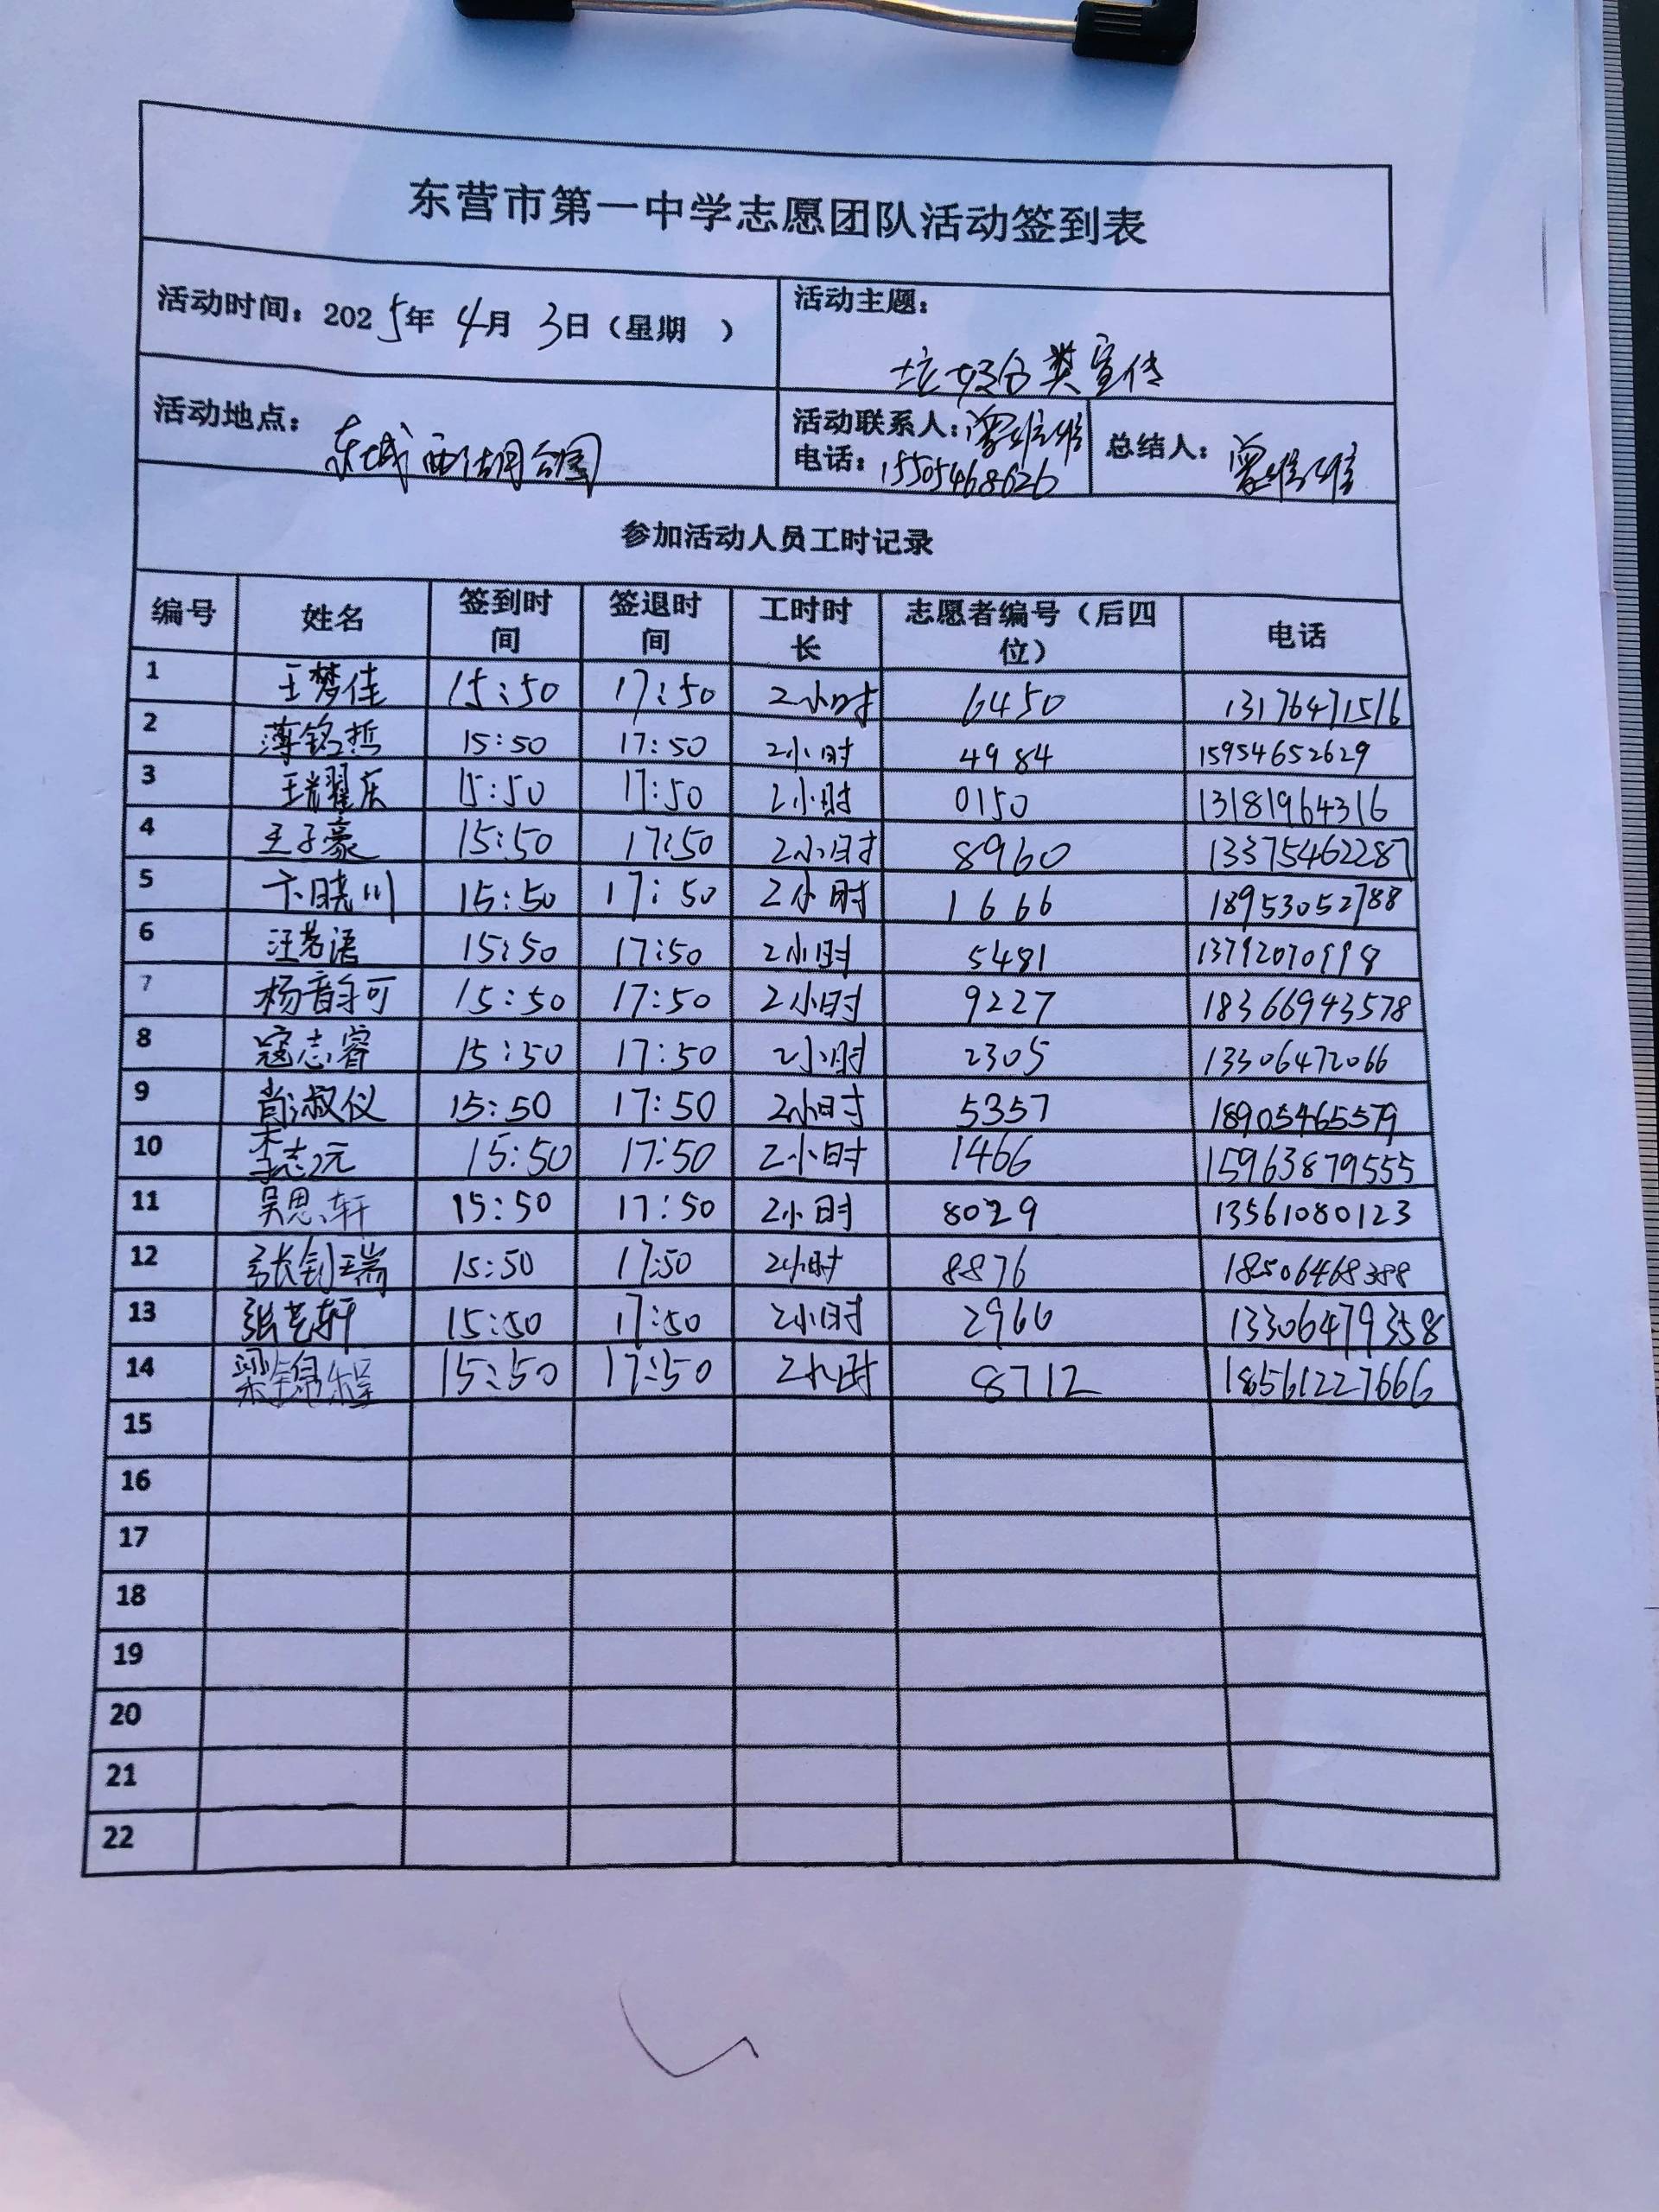 东营市第一中学志愿团队活动签到表
活动时间：2025年 4月 3日（星期 ）
活动主题：
垃圾分类宣传
活动地点：
东城西湖公园
活动联系人：
电话：15505468626
总结人：
参加活动人员工时记录
编号 姓名 签到时间 签退时间 工时时长 志愿者编号（后四位） 电话
1 王梦佳 15:50 17:50 2小时 6450 13176471516
2 薄铭哲 15:50 17:50 2小时 4984 15954652629
3 15:50 17:50 2小时 0150 13181964316
4 王子豪 15:50 17:50 2小时 8960 13375462287
5 卞晓川 15:50 17:50 2小时 1666 18953052788
6 汪茗语 15:50 17:50 2小时 5481
7 杨韵可 15:50 17:50 2小时 9227 18366943578
8 寇志睿 15:50 17:50 2小时 2305 13306472066
9 肖淑仪 15:50 17:50 2小时 5357 18905465579
10 李志元 15:50 17:50 2小时 1466 15963879555
11 吴思轩 15:50 17:50 2小时 8029 13561080123
12 张钊瑞 15:50 17:50 2小时 8876 18506468388
13 张艺轩 15:50 17:50 2小时 2966 13306479358
14 梁锦程 15:50 17:50 2小时 8712 18561227666
15
16
17
18
19
20
21
22